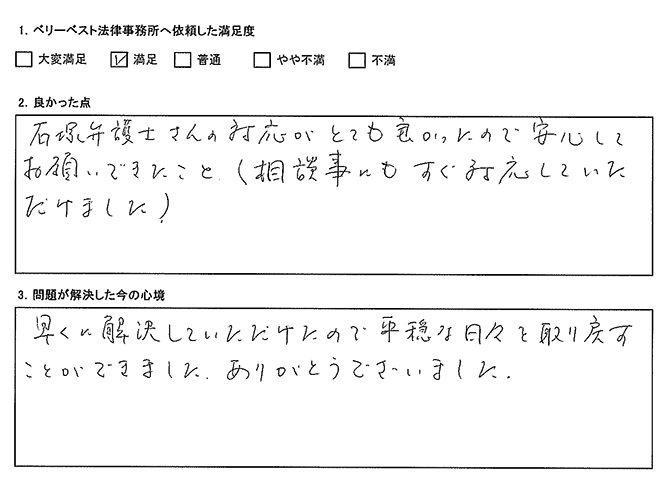 1. ベリーベスト法律事務所へ依頼した満足度
□ 大変満足 ☑ 満足 □ 普通 □ やや不満 □ 不満
2. 良かった点
石塚弁護士さんの対応がとても良かったので安心して
お願いできたこと.(相談事にもすぐ対応していた
だけました)
3. 問題が解決した今の心境
早くに解決していただけたので平穏な日々を取り戻す
ことができました.ありがとうございました.